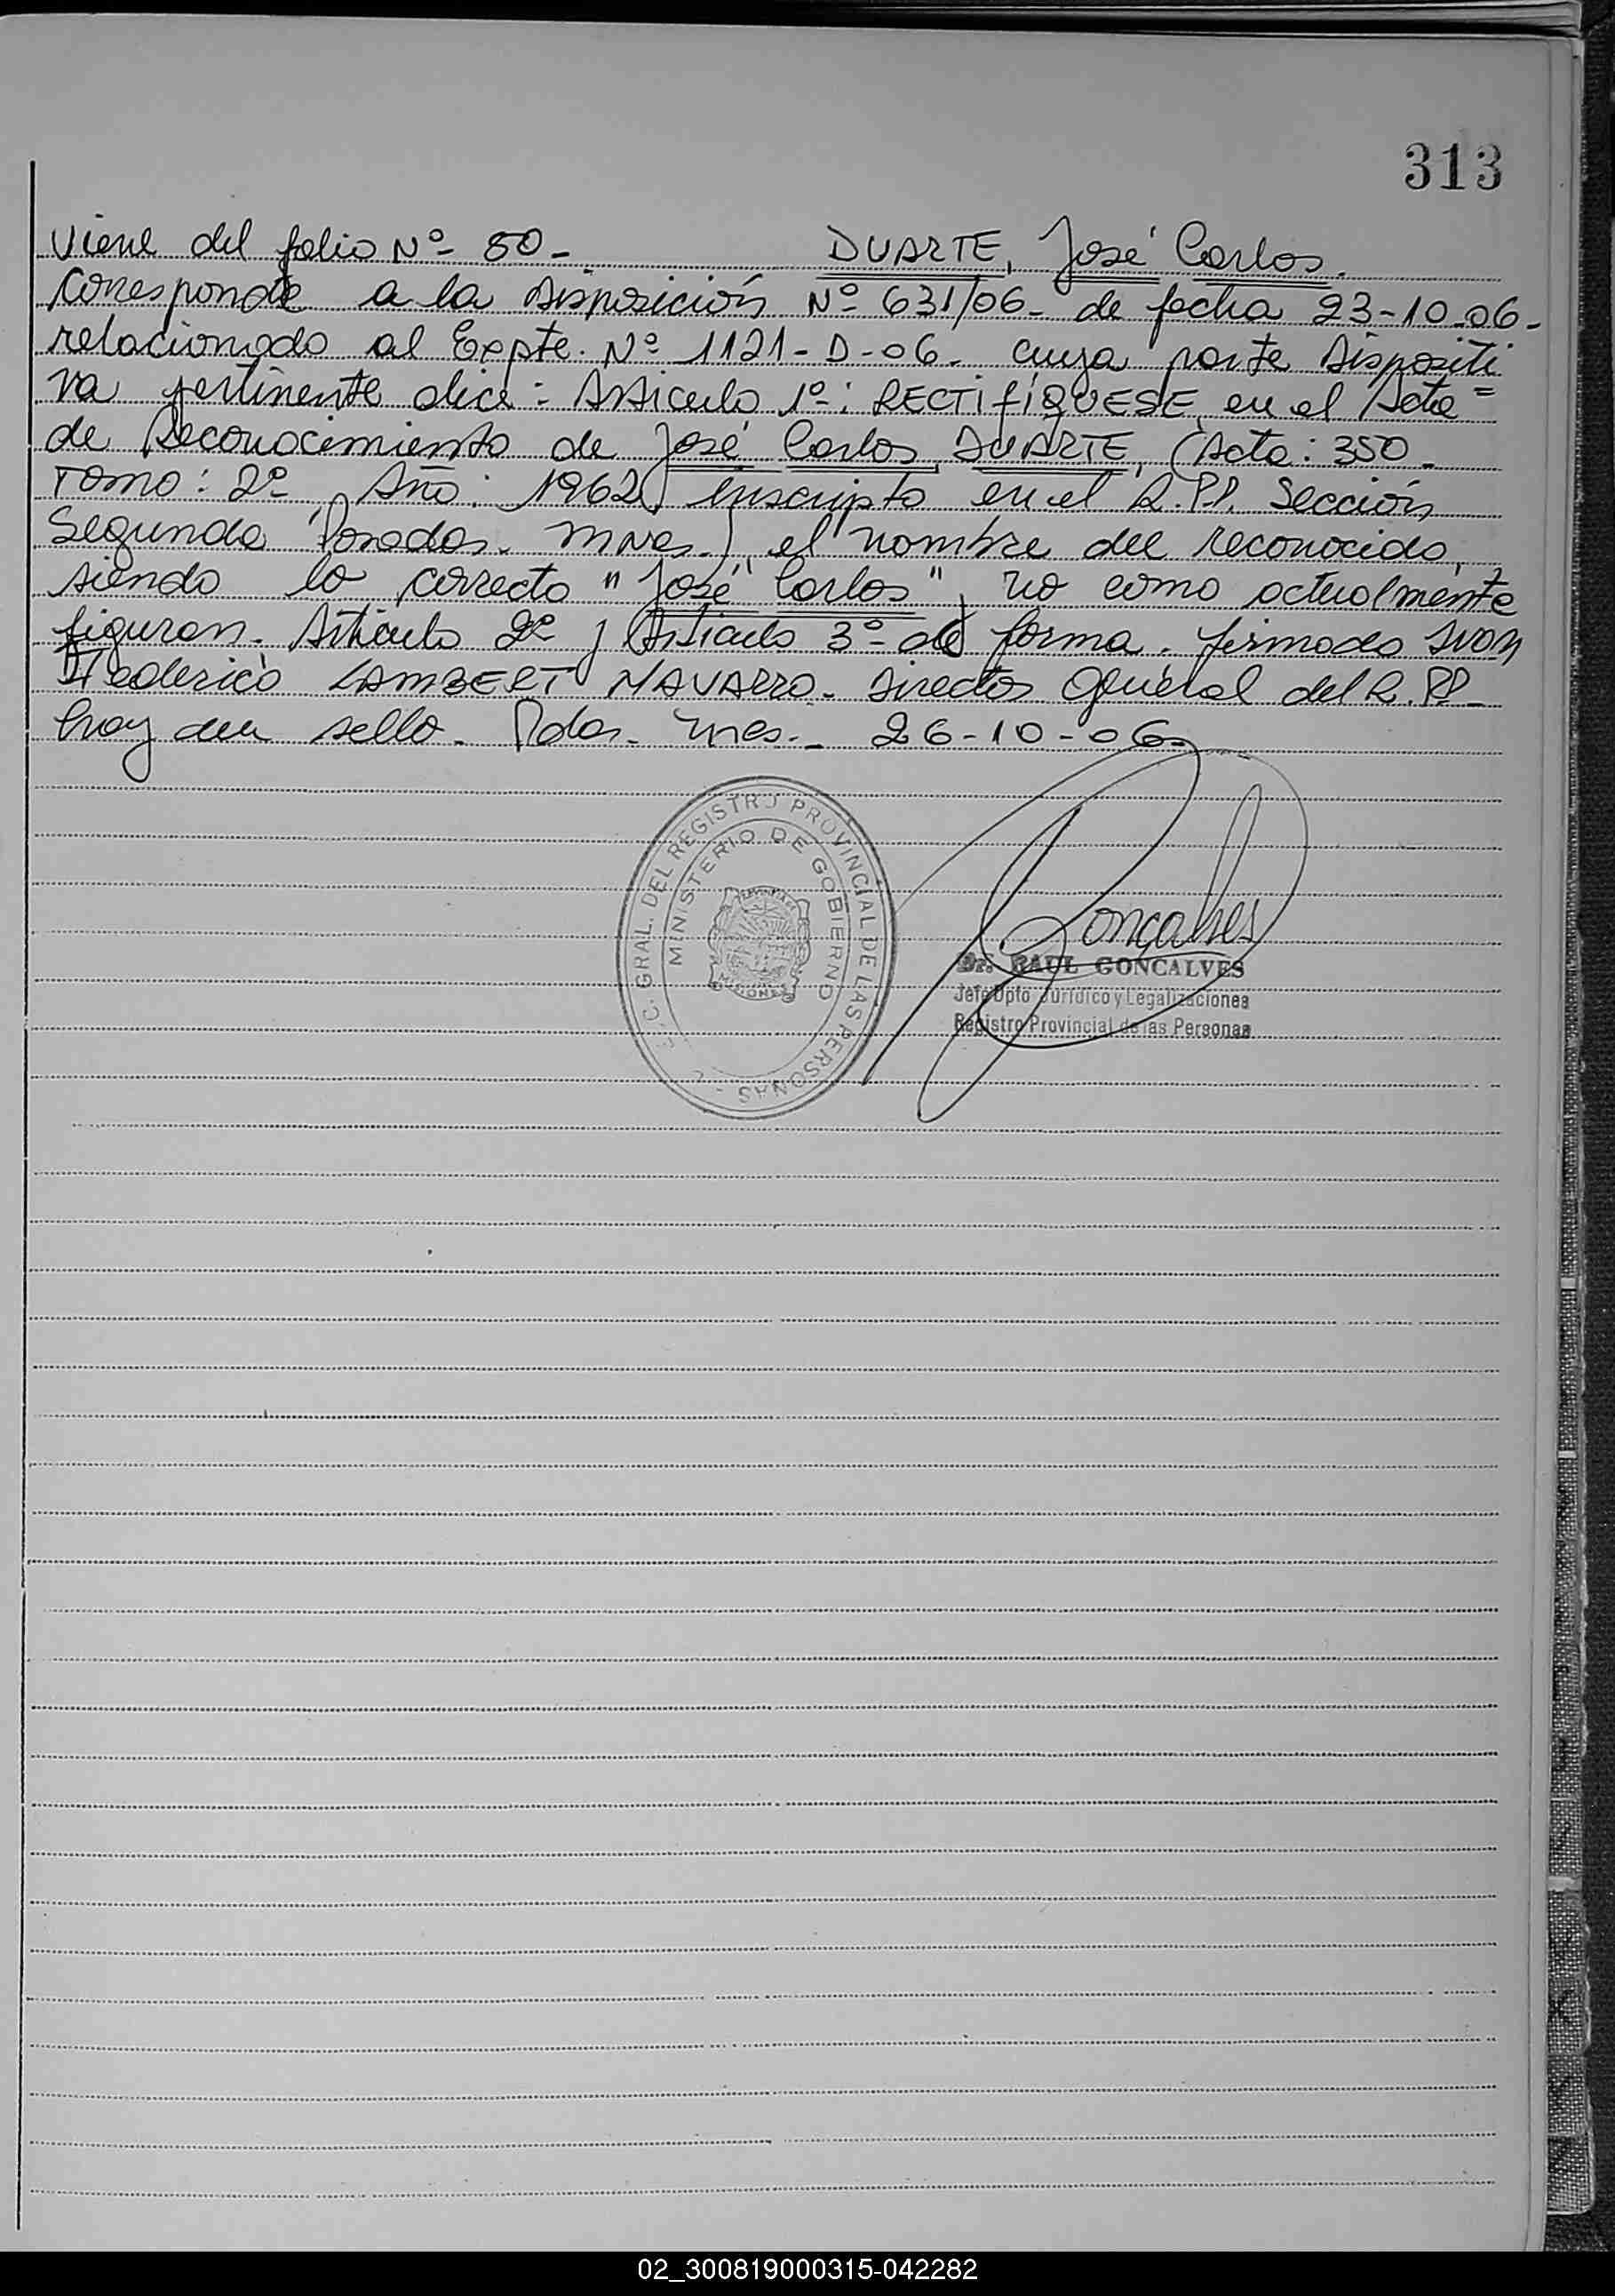 313
Viene del folio Nº 80- DUARTE, José Carlos.
Corresponde a la Disposición Nº 631/06- de fecha 23-10-06-
relacionado al Expte. Nº 1121-D-06- cuya parte Dispositi
va pertinente dice: Articulo 1º: RECTIFÍQUESE, en el Acta
de Reconocimiento de José Carlos DUARTE, (Acta: 350-
Tomo: 2º, Año: 1962, inscripto en el R.P.P. Sección
Segunda Posadas. Mnes.) el nombre del reconocido,
siendo lo correcto "José Carlos" y no como actualmente
figuran. Artículo 2º y Artículo 3º- de forma. firmado Ivan
Federico LAMBERT NAVARRO- Director General del R.PP-
hay un sello. Pdas. Mnes.- 26-10-06-
GRAL. DEL REGISTRO PROVINCIAL DE LAS PERSONAS -
MINISTERIO DE GOBIERNO
MISIONES
Gonçalves
Dr. RAUL GONCALVES
Jefe Dpto Jurídico y Legalizaciones
Registro Provincial de las Personas
02_300819000315-042282